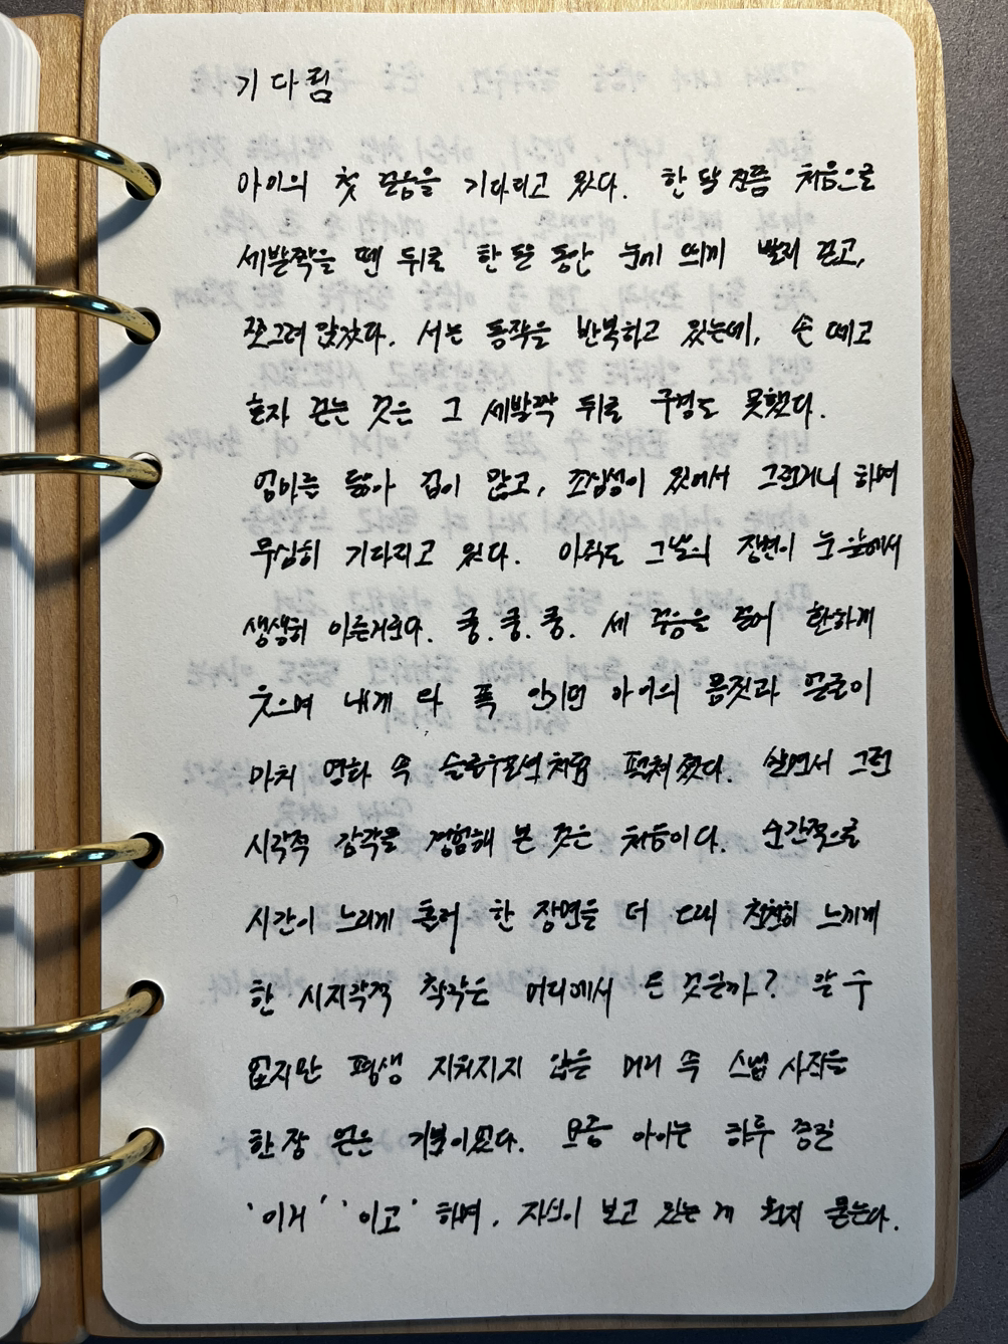 기다림
아이의 첫 걸음을 기다리고 있다. 한 달 전쯤 처음으로
세발짝을 뗀 뒤로 한 달 동안 눈에 띄게 발전 없고,
쪼그려 앉았다. 서는 동작을 반복하고 있는데, 손 떼고
혼자 걷는 것은 그 세발짝 뒤로 구경도 못했다.
엄마를 닮아 겁이 많고, 조심성이 있어서 그런거니 하며
무심히 기다리고 있다. 아직도 그날의 장면이 눈 앞에서
생생히 아른거린다. 쿵. 쿵. 쿵. 세 걸음을 걸어 환하게
웃으며 내게 와 폭 안기던 아이의 몸짓과 얼굴이
마치 영화 속 슬로우모션처럼 펼쳐졌다. 살면서 그런
시각적 감각을 경험해 본 것은 처음이다. 순간적으로
시간이 느리게 흘러 한 장면을 더 천천히 느끼게
한 시지각적 착각은 어디에서 온 것일까? 알 수
없지만 평생 지워지지 않을 머리 속 스냅 사진을
한 장 얻은 기분이었다. 요즘 아이는 하루 종일
'이거' '이고' 하며, 자신이 보고 있는 게 뭔지 묻는다.